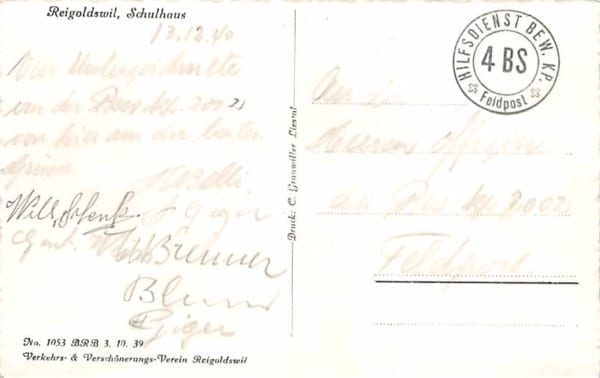 Reigoldswil, Schulhaus
13.12.40
Vier Unterzeichnete
von der Bew. Kp. 2002
von hier aus die besten
Grüsse.
Willi Schenk
Giger
Brenner
Blum
Giger
HILFSDIENST BEW. KP.
4 BS
Feldpost
An die
Herren Offiziere
der Bew. Kp. 2002
Feldpost
Druck: C. Grauwiller Liestal
No. 1053 BRB 3. 10. 39
Verkehrs- & Verschönerungs-Verein Reigoldswil